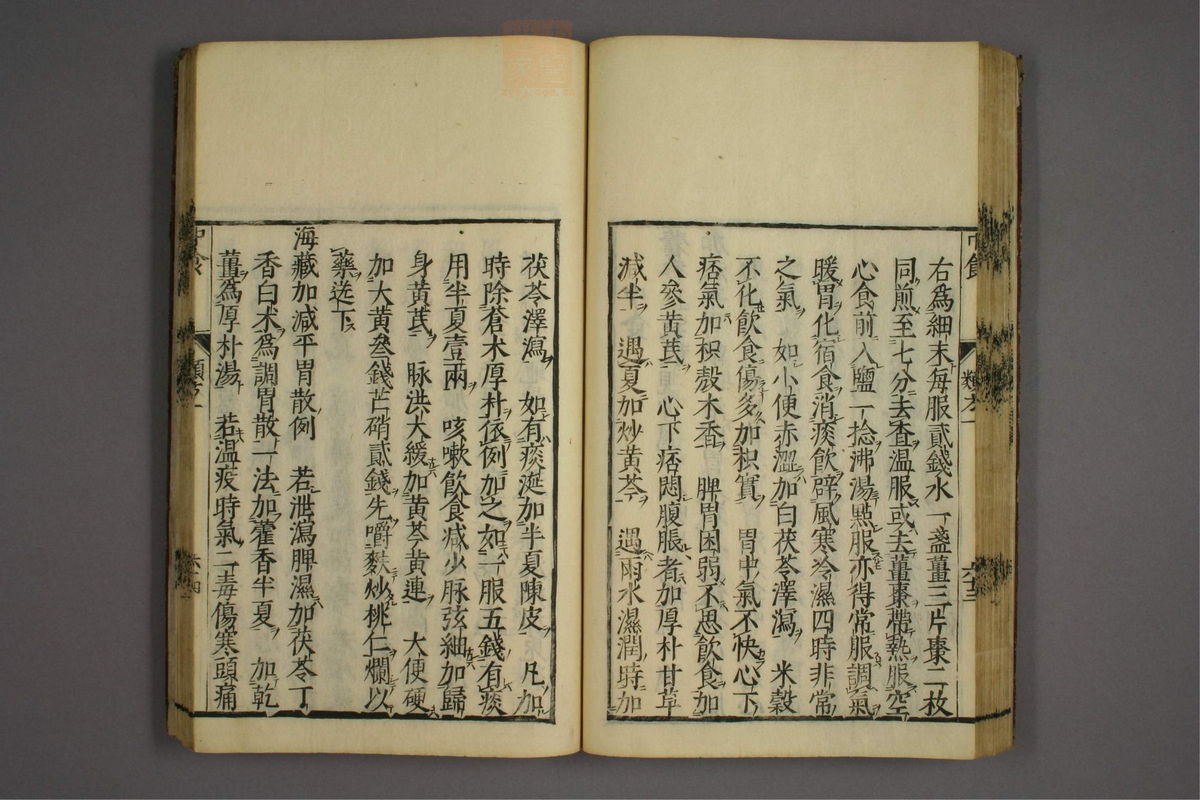 右爲細末每服貳錢水一盞薑三片棗二枚
同煎至七分去査温服或去薑棗帶熱服空
心食前入鹽一捻沸湯㸃服亦得常服調氣
暖胃化宿食消痰飲辟風寒冷濕四時非常
之氣 如小便赤澀加白茯苓澤瀉 米穀
不化飲食傷多加枳實 胃中氣不快心下
痞氣加枳殼木香 脾胃困弱不思飲食加
人參黄茋 心下痞悶腹脹者加厚朴甘草
減半 遇夏加炒黄芩 遇雨水濕潤時加
茯苓澤瀉 如有痰涎加半夏陳皮 凡加
時除蒼木厚朴依例加之如一服五錢有痰
用半夏壹兩 咳嗽飲食減少脉弦細加歸
身黄茋 脉洪大緩加黄芩黄連 大便硬
加大黄叁錢芒硝貳錢先嚼麩炒桃仁爛以
藥送下
海藏加減平胃散例 若泄瀉脾濕加茯苓丁
香白术爲調胃散一法加藿香半夏 加乾
薑爲厚朴湯 若温疫時氣二毒傷寒頭痛